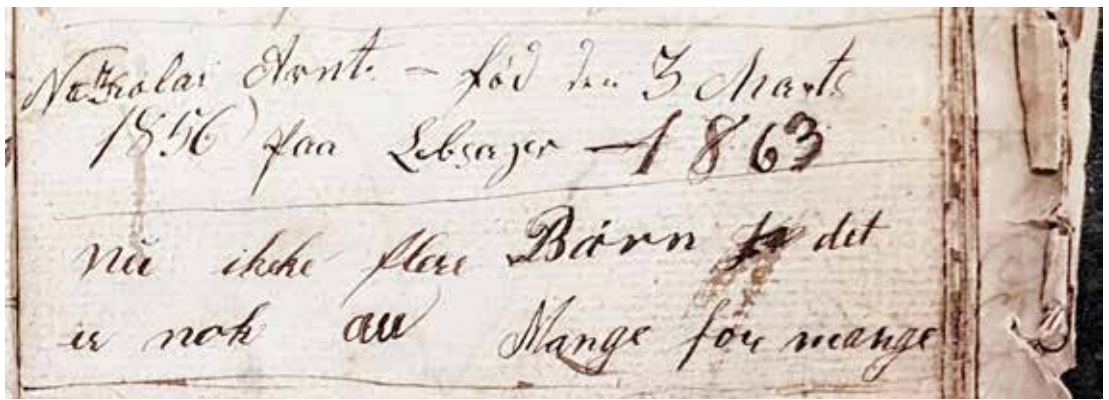 Nickolai Arnt. – fød den 3 Marts
1856 paa – 1863
nu ikke flere Børn det
er nok au Mange for mange